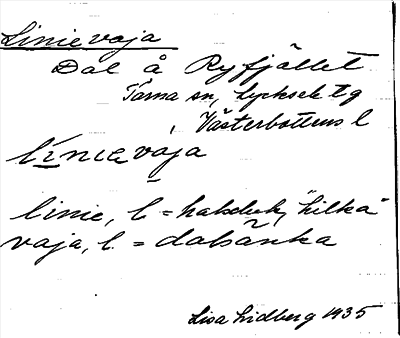 Linievaja
Dal å Ryfjället
Tärna sn, Lycksele tg
Västerbottens l
linievaja
linie, l = halsduk, "hilka"
vaja, l. = dalsänka
Lisa Lidberg 1935